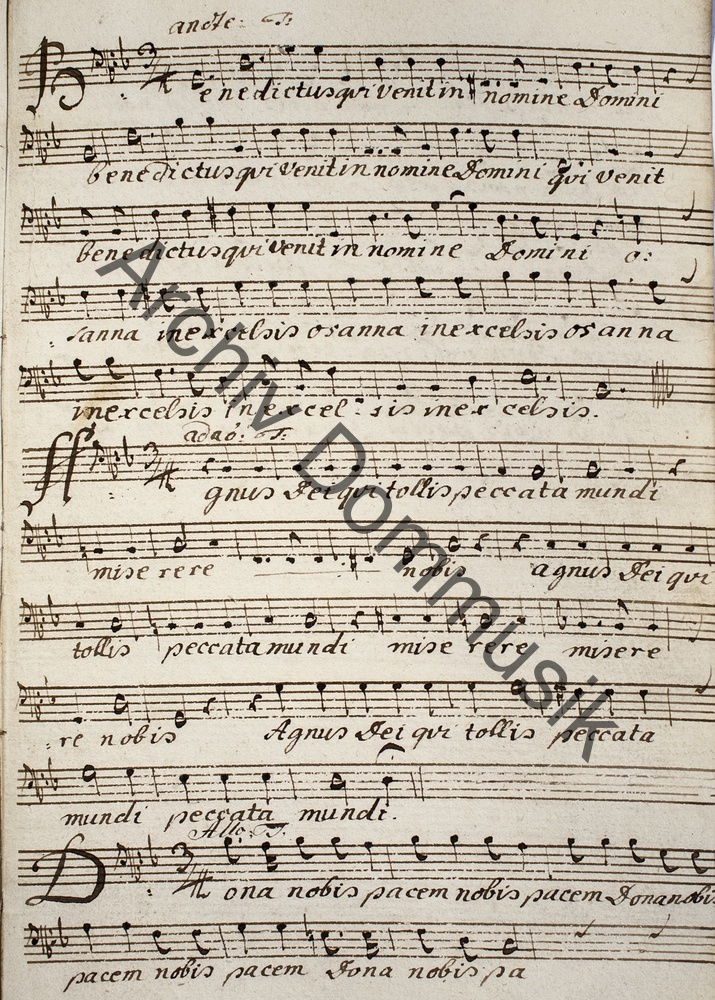 andte: T:
Benedictus qui venit in nomine Domini
benedictus qui venit in nomine Domini qui venit
benedictus qui venit in nomine Domini o:
sanna in excelsis osanna in excelsis osanna
in excelsis in excel: sis in ex celsis.
adao: T:
Agnus Dei qui tollis peccata mundi
mise rere nobis agnus Dei qui
tollis peccata mundi mise rere misere
:re nobis Agnus Dei qui tollis peccata
mundi peccata mundi.
Allo: T:
Dona nobis pacem nobis pacem Dona nobis
pacem nobis pacem Dona nobis pa
Archiv Dommusik